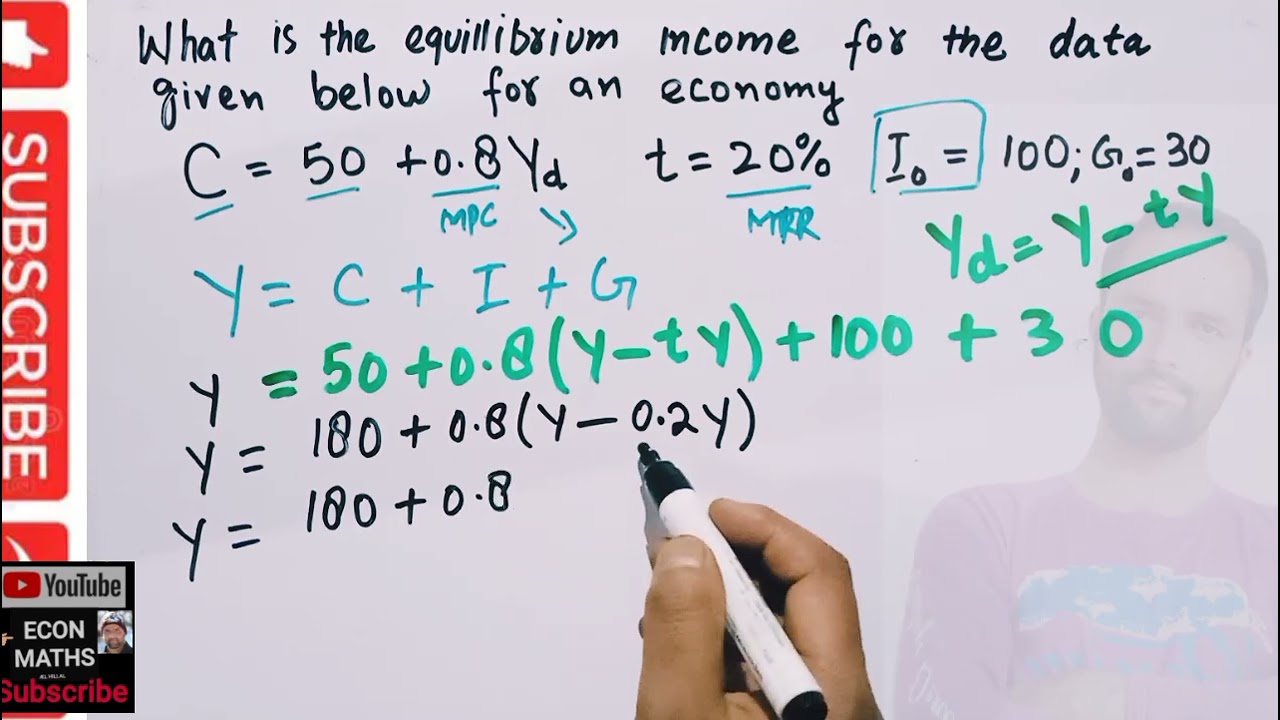 What is the equillibrium mcome for the data
given below for an economy
C = 50 + 0.8 Yd t = 20% I₀ = 100; G₀ = 30
MPC MRR
Yd = Y - tY
Y = C + I + G
Y = 50 + 0.8 (Y - tY) + 100 + 30
Y = 180 + 0.8 (Y - 0.2Y)
Y = 180 + 0.8
SUBSCRIBE
YouTube
ECON
MATHS
Subscribe